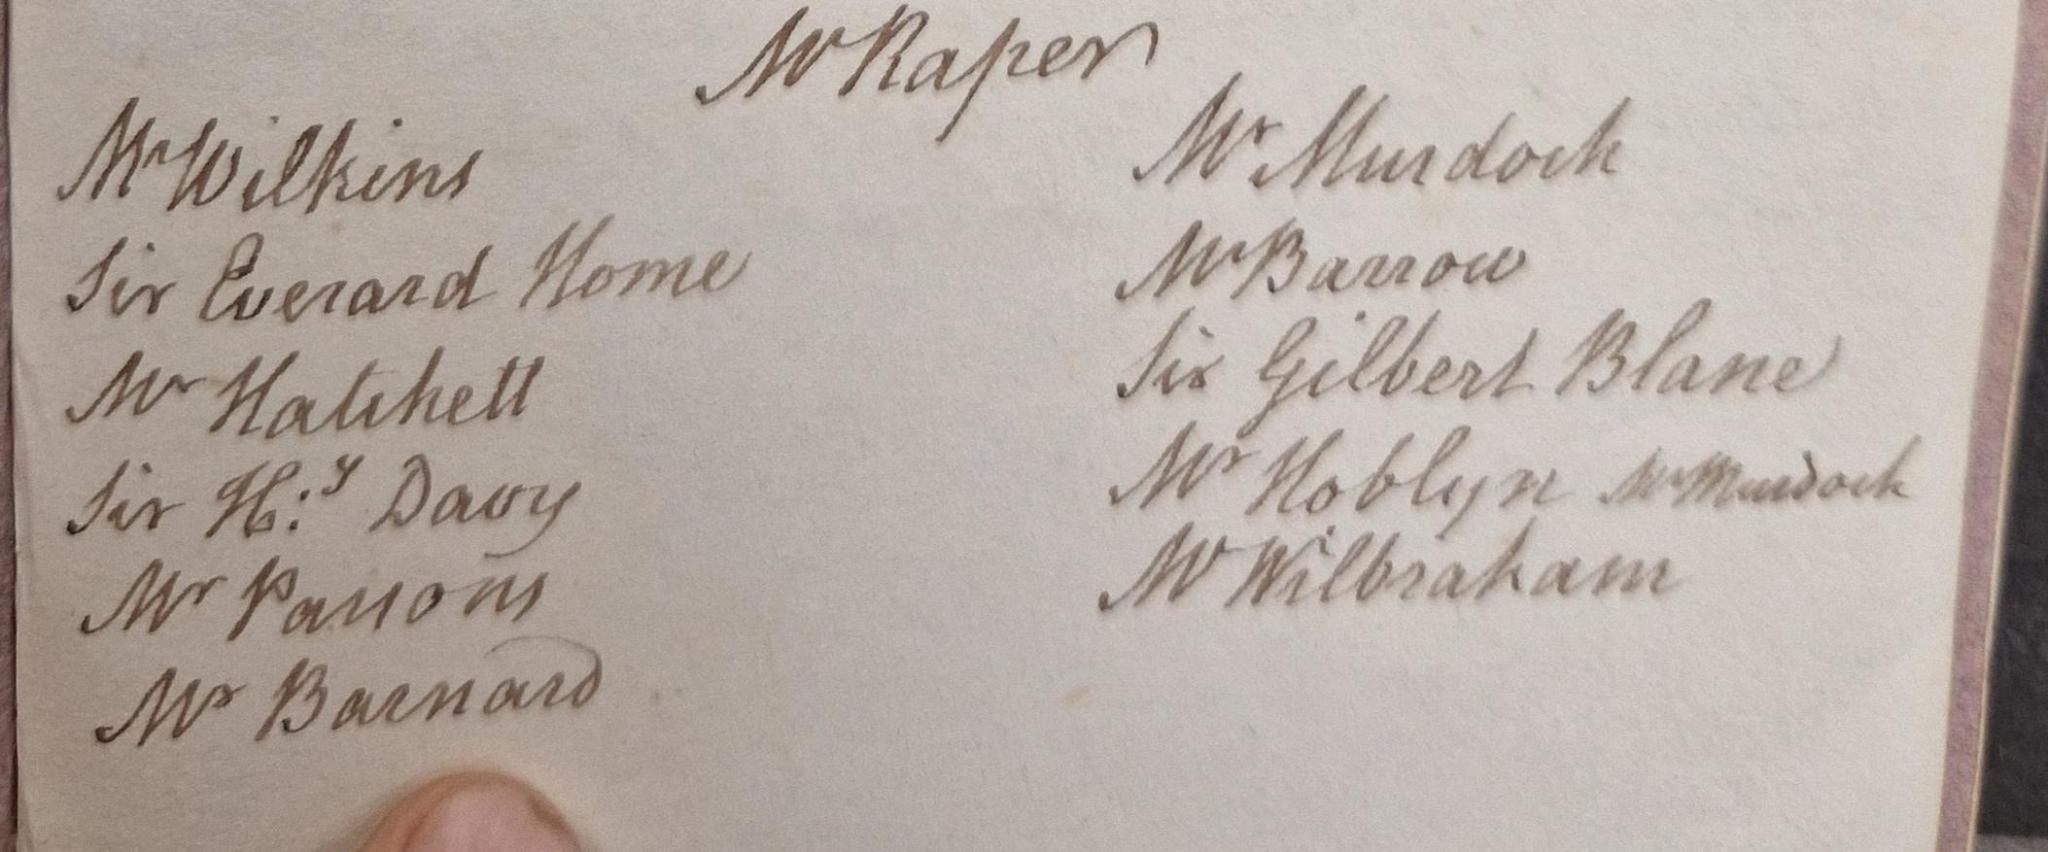 Mr Raper
Mr Wilkins
Sir Everard Home
Mr Hatchett
Sir H:y Davy
Mr Parsons
Mr Barnard
Mr Murdoch
Mr Barrow
Sir Gilbert Blane
Mr Hoblyn Mr Murdoch
Mr Wilbraham